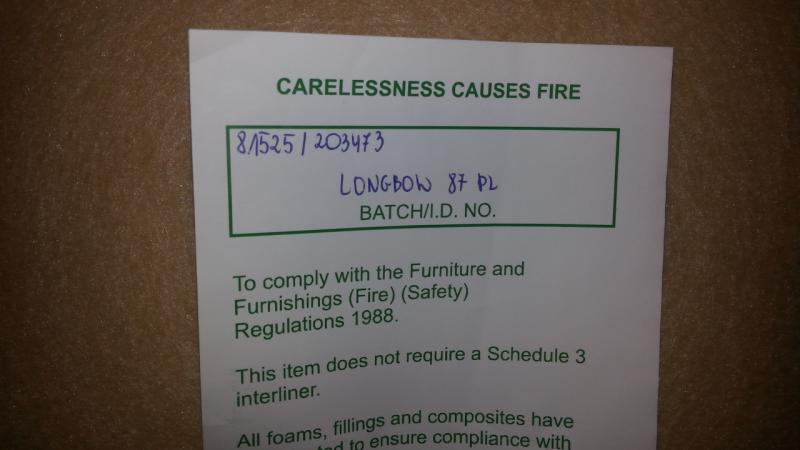 CARELESSNESS CAUSES FIRE
81525/203473
LONGBOW 87 PL
BATCH/I.D. NO.
To comply with the Furniture and
Furnishings (Fire) (Safety)
Regulations 1988.
This item does not require a Schedule 3
interliner.
All foams, fillings and composites have
to ensure compliance with